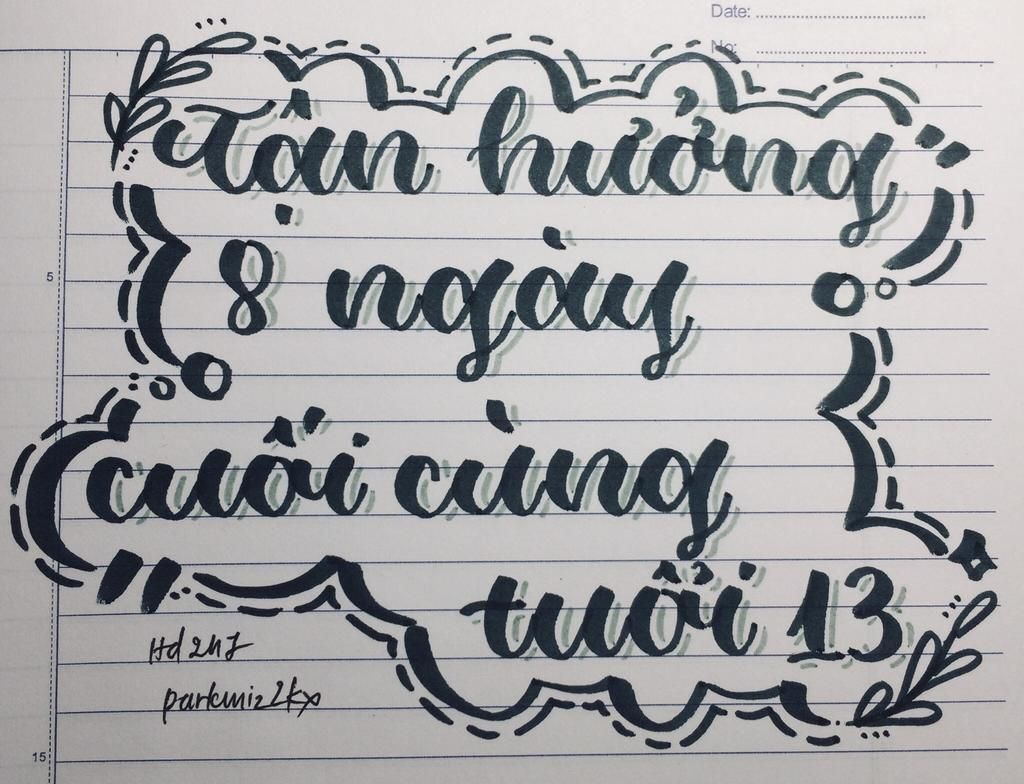 Date:
No:
Tận hưởng
8 ngày
5
cuối cùng
tuổi 13
parkmiz2kx
15